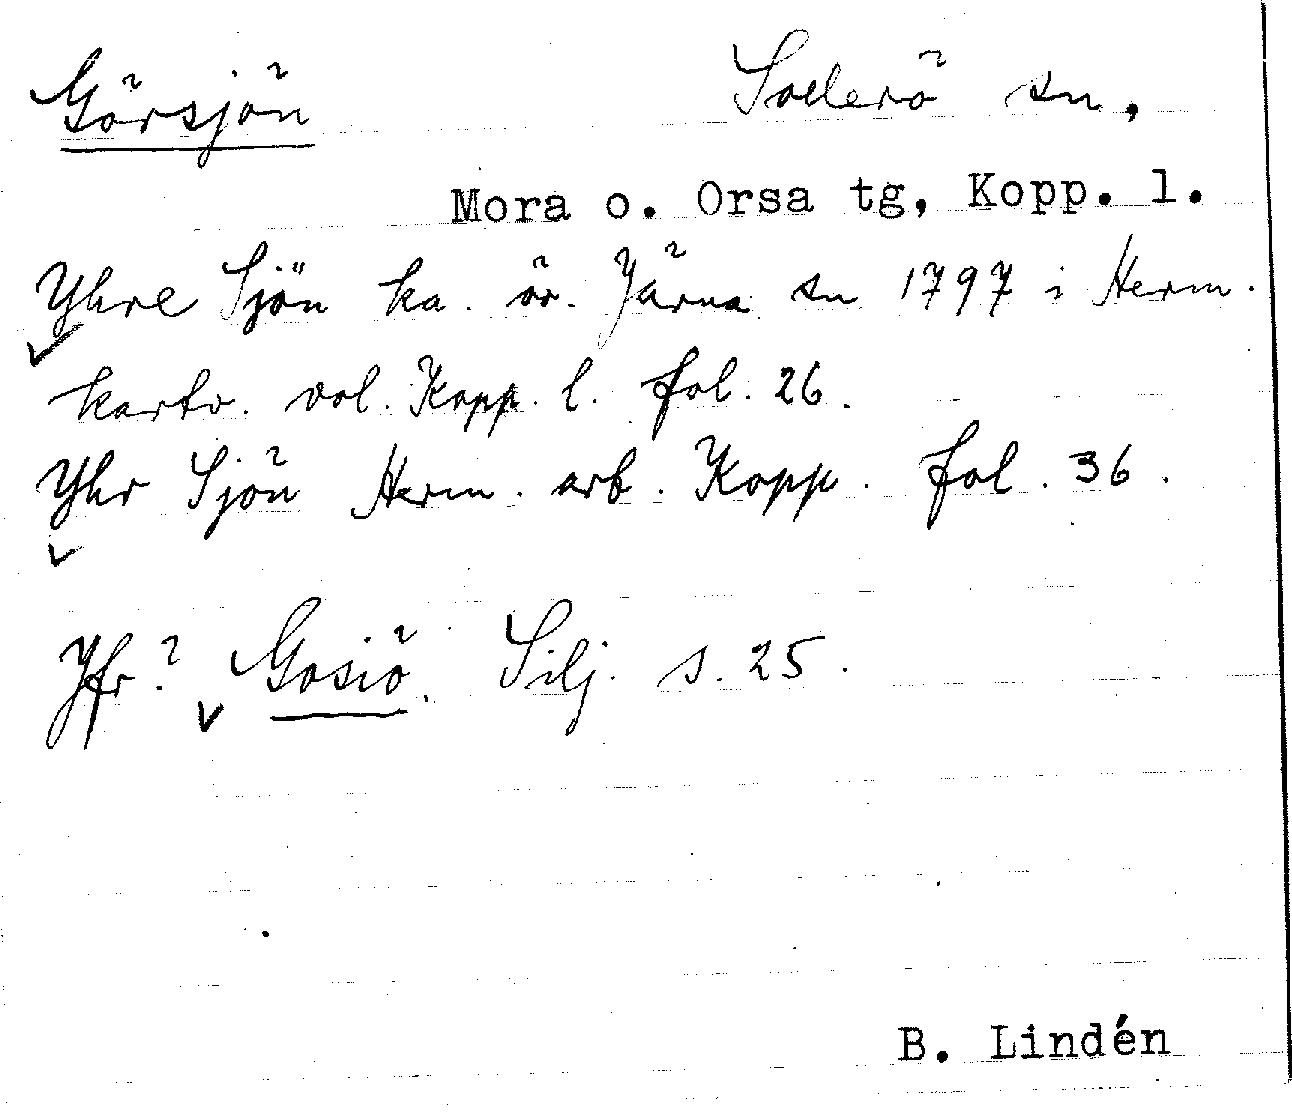 Görsjön Sollerö sn,
Mora o. Orsa tg, Kopp. l.
Yhre Sjön ka. öv. Järna sn 1797 i Herm.
kartv. vol. Kopp. l. fol. 26.
Yhr Sjön Herm. arb. Kopp. fol. 36.
Jfr? Gosiö. Silj. s. 25.
B. Lindén